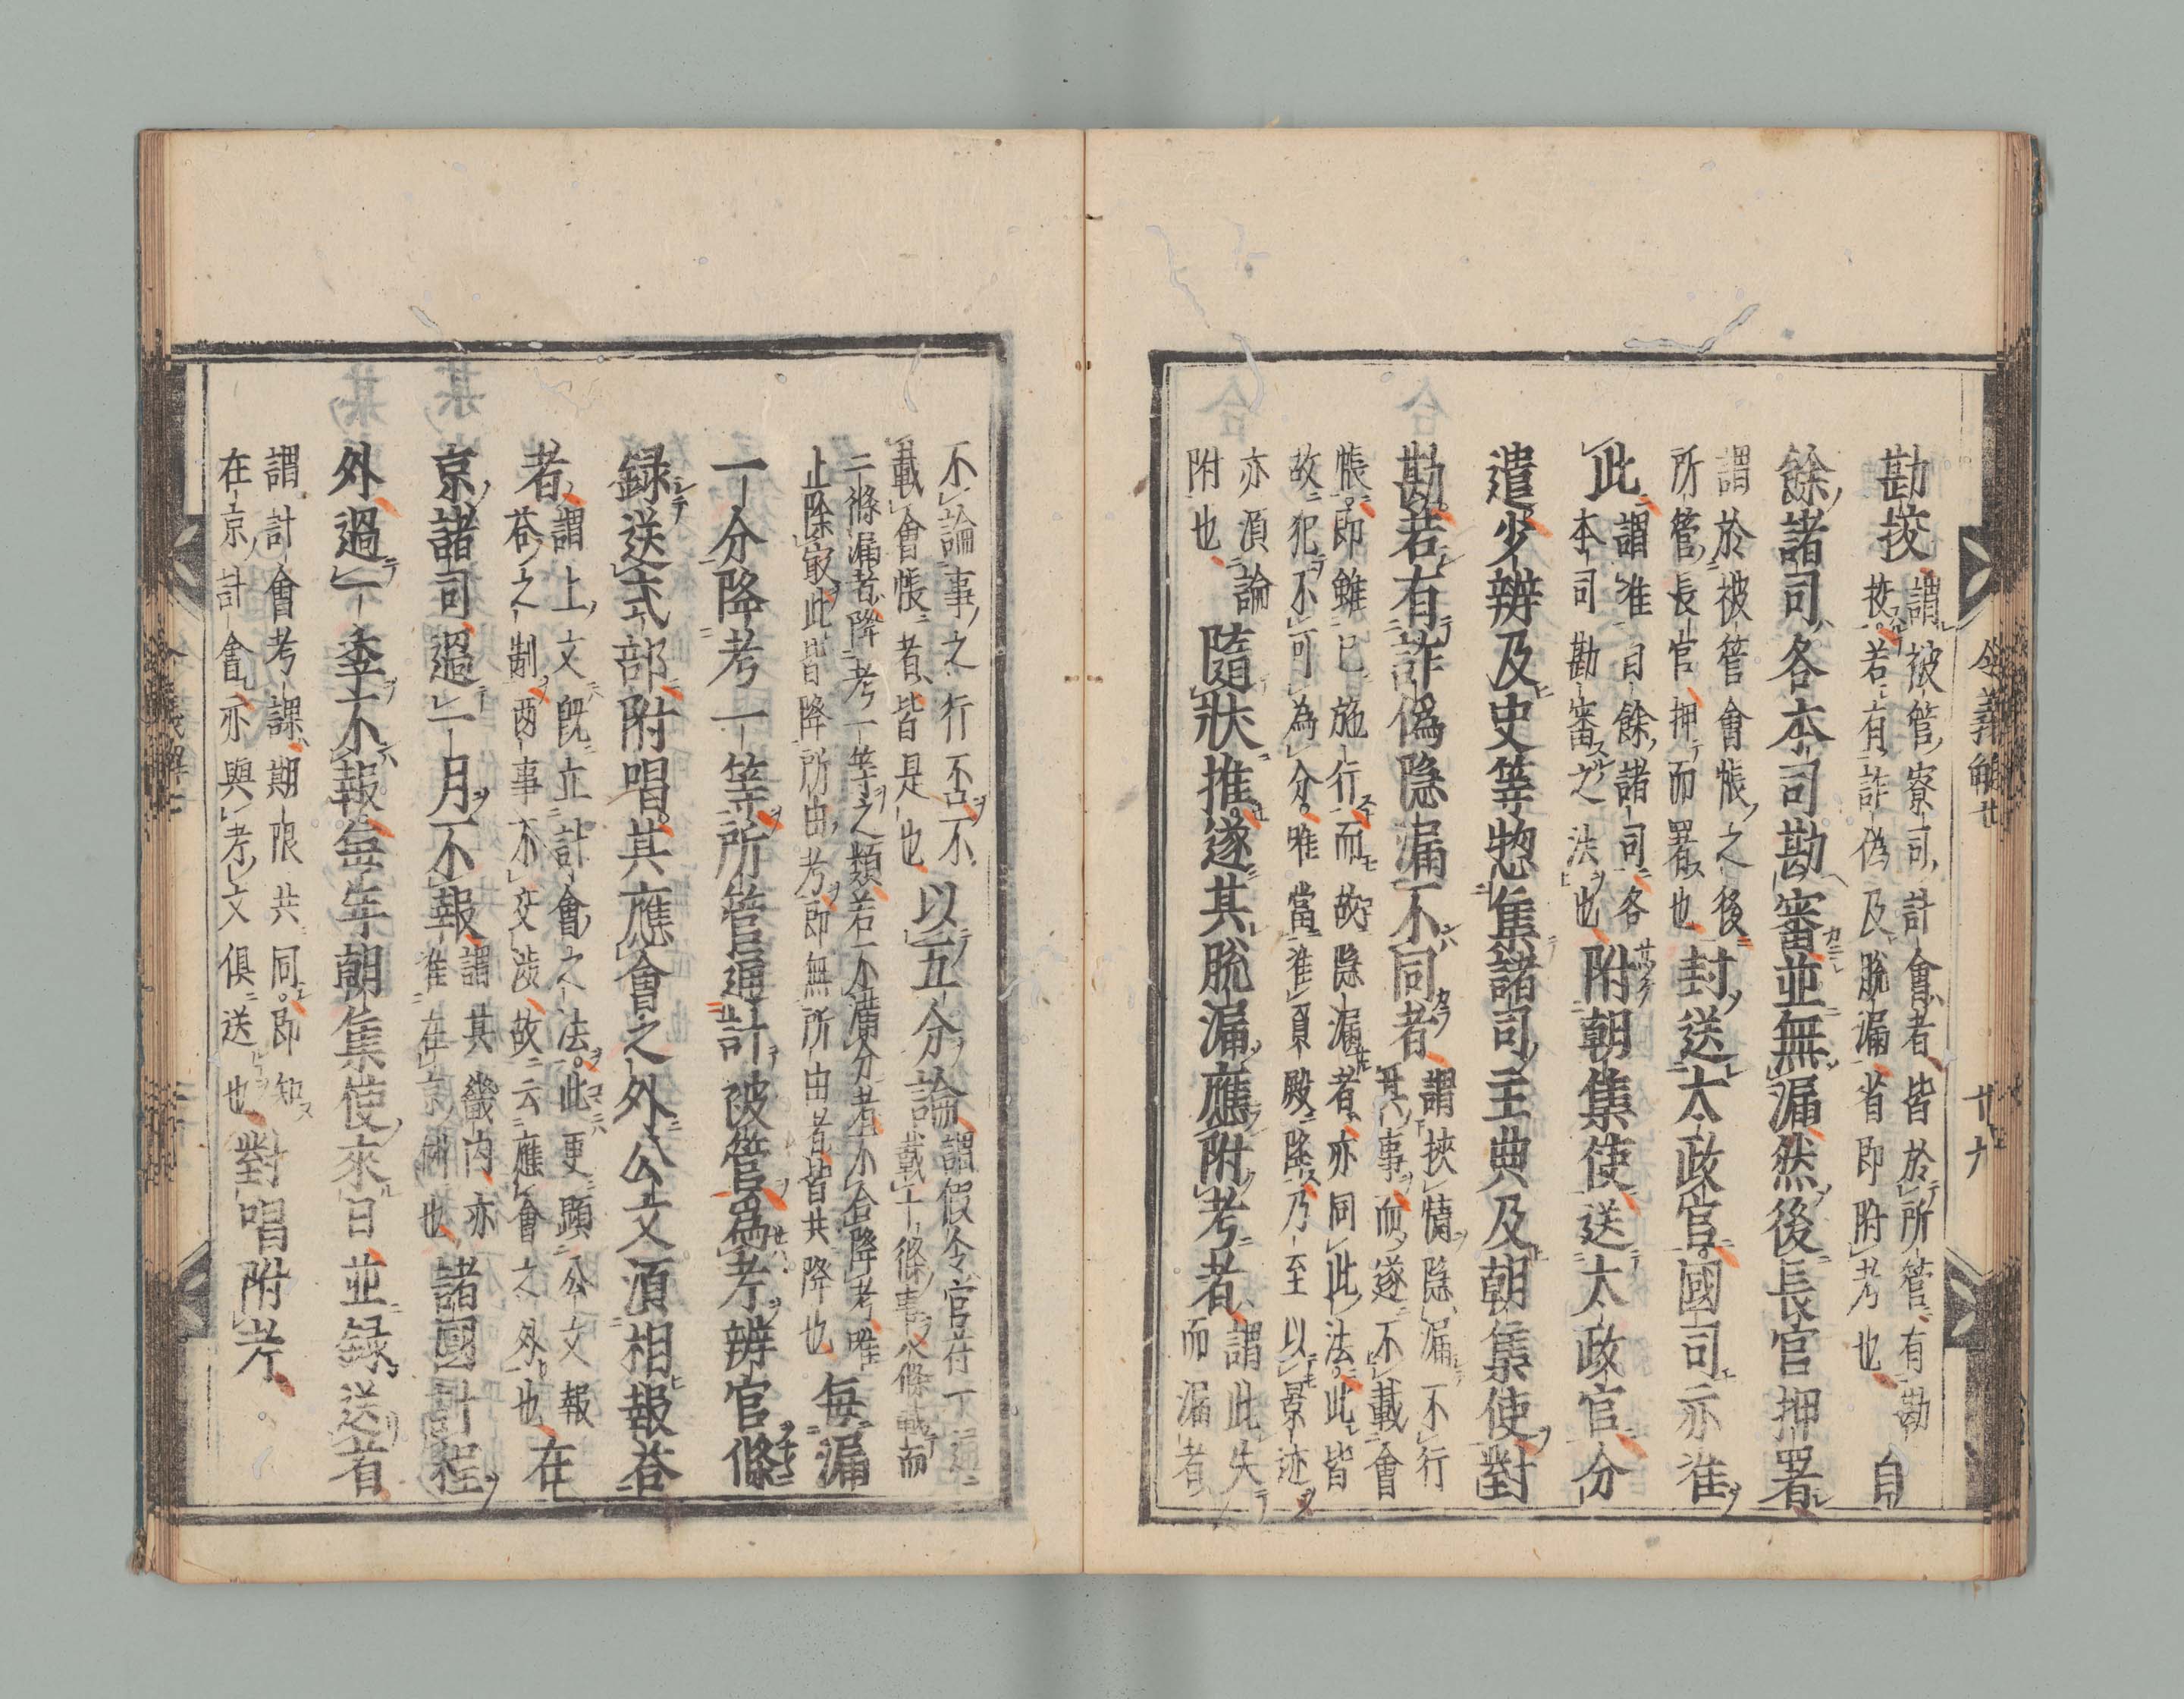 勘挍
謂被管寮司計會者皆於所管有勘
挍若有詐偽及脫漏者即附考也
自
餘諸司各本司勘審並無漏然後長官押署
謂於被管會帳之後
所管長官押而署也
封送太政官國司亦准
此
謂准自餘諸司各
本司勘審之法也
附朝集使送太政官分
遣少辨及史等惣集諸司主典及朝集使對
勘若有詐偽隠漏不同者
謂挾情隠漏不行
其事而遂不載會
帳即雖已施行而故隠漏者亦同此法此皆
故犯不可為分唯當准頁殿降乃至以景迹
亦湏論
附也
隨狀推逐其脫漏應附考者
謂此失
而漏者
不論事之行不不
載會帳者皆是也
以五分論
謂假令官符下
載十條事八條載而
二條漏者降考一等之類若不滿分者不合降考唯
止除寂此皆降所由考即無所由者皆共降也
每漏
一分降考一等所管通計被管爲考辨官條
録送式部附唱其應會之外公文湏相報荅
者
謂上文既立計會之法此更顕公文報
荅之制两事不交渉故云應會之外也
在
京諸司過一月不報
謂其畿内亦
准在京例也
諸國計程
外過一季不報每年朝集使來日並録送省
謂計會考課期限共同即知
在京計會亦與考文俱送也
對唱附考
令義解廿
廿九